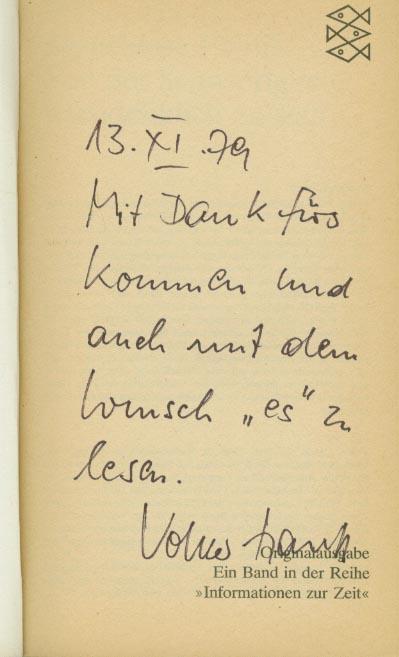 13.XI.79
Mit Dank fürs
Kommen und
auch mit dem
Wunsch „es“ zu
lesen.
Volker
Originalausgabe
Ein Band in der Reihe
»Informationen zur Zeit«